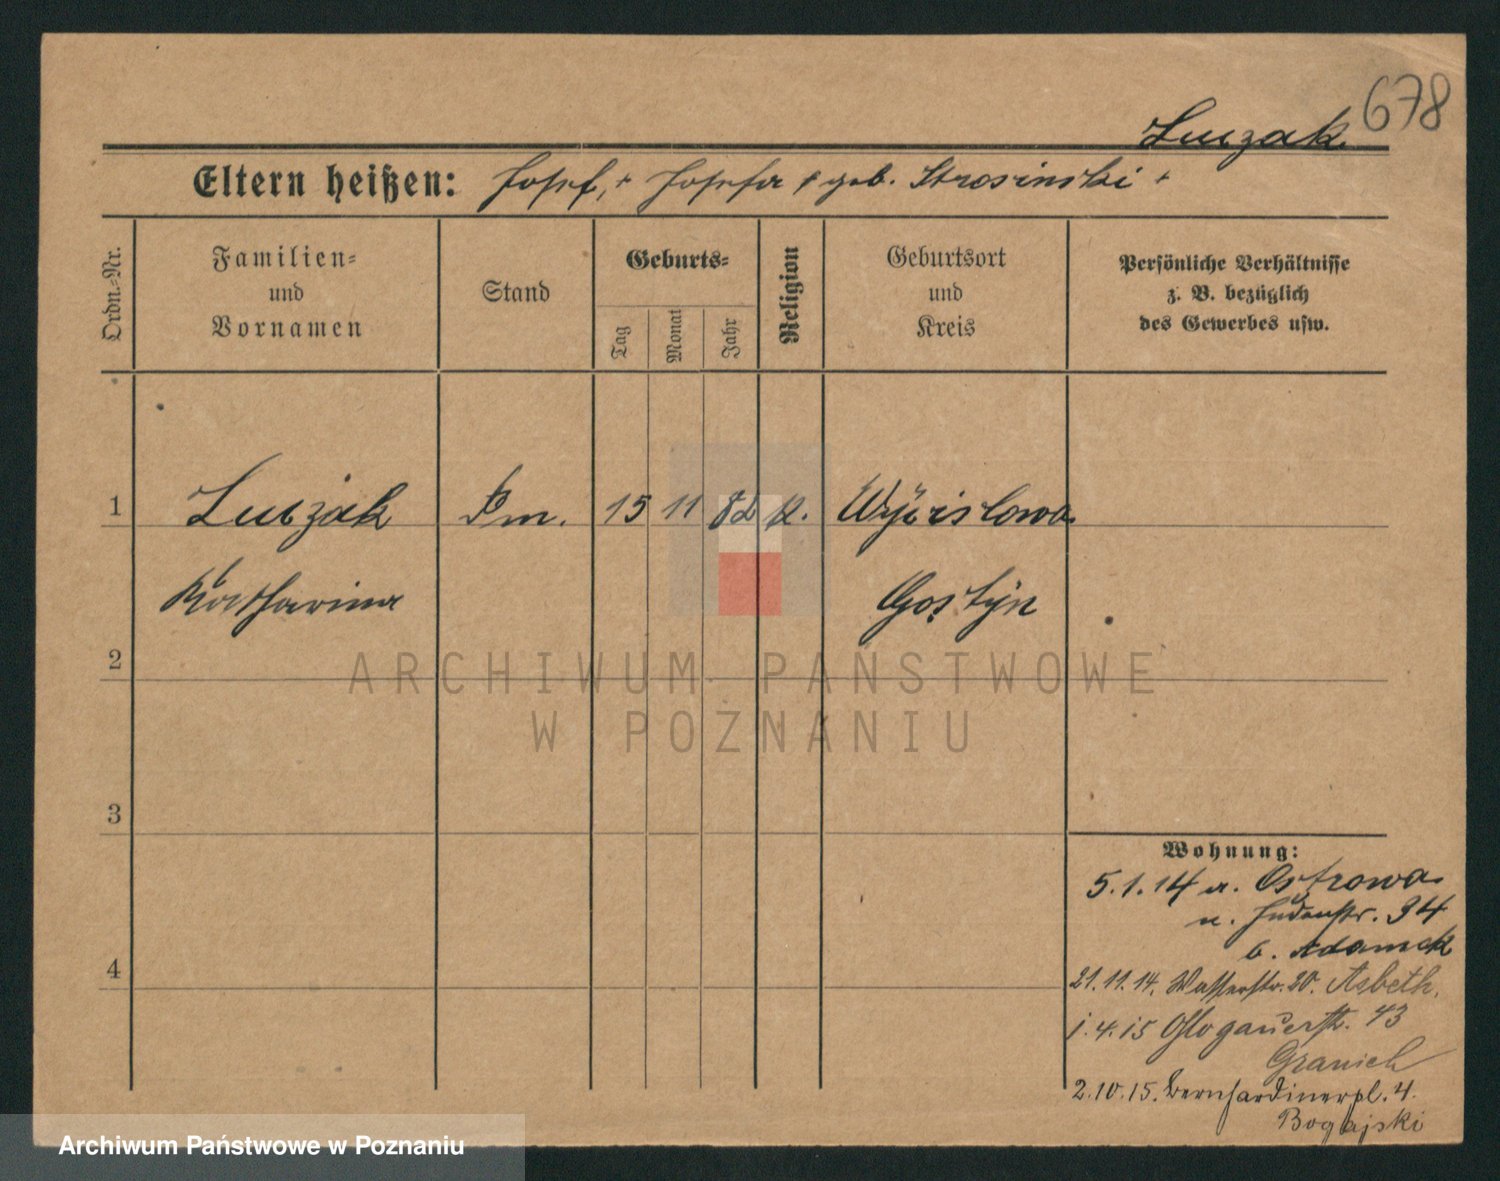 678
Luczak
Eltern heißen: Josef, + Josefa geb. Strosinski +
Ordn.-Nr.
Familien-
und
Vornamen
Stand
Geburts-
Tag
Monat
Jahr
Religion
Geburtsort
und
Kreis
Persönliche Verhältnisse
z. B. bezüglich
des Gewerbes usw.
1 Luczak 15 11 82 k.
Katharina Gostyn
2
ARCHIWUM PAŃSTWOWE
W POZNANIU
3
Wohnung:
5.1.14 a. Ostrowo
n. Judenstr. 34
b. Adamek
4
21.11.14. Wasserstr. 20. Asbeth.
1.4.15 Glogauerstr. 43
Granich
2.10.15. Bernhardinerpl. 4.
Bogajski
Archiwum Państwowe w Poznaniu